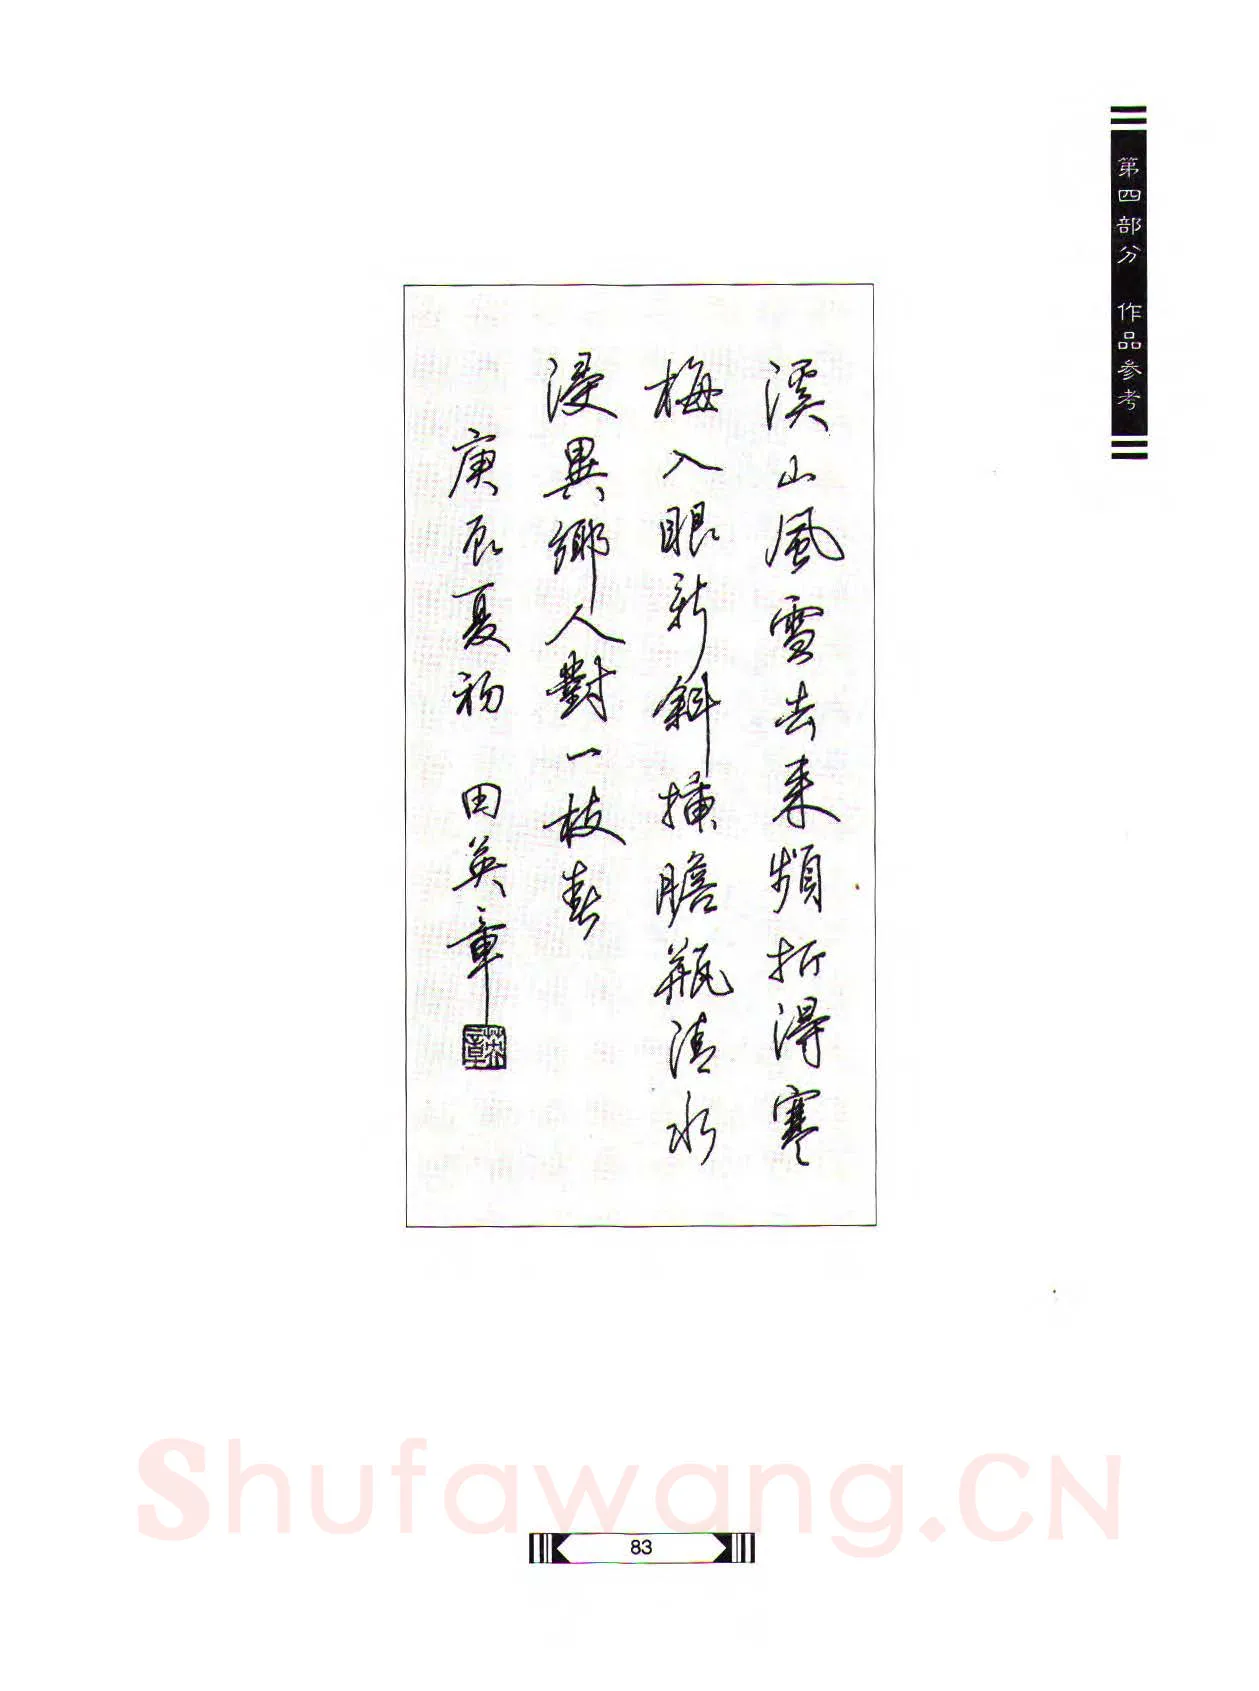 第四部分 作品參考
溪山風雪去来頻折得寒
梅入眼新斜挿膽瓶清水
浸異鄉人對一枝春
庚辰夏初 田英章
英章
83
Shufawang.CN